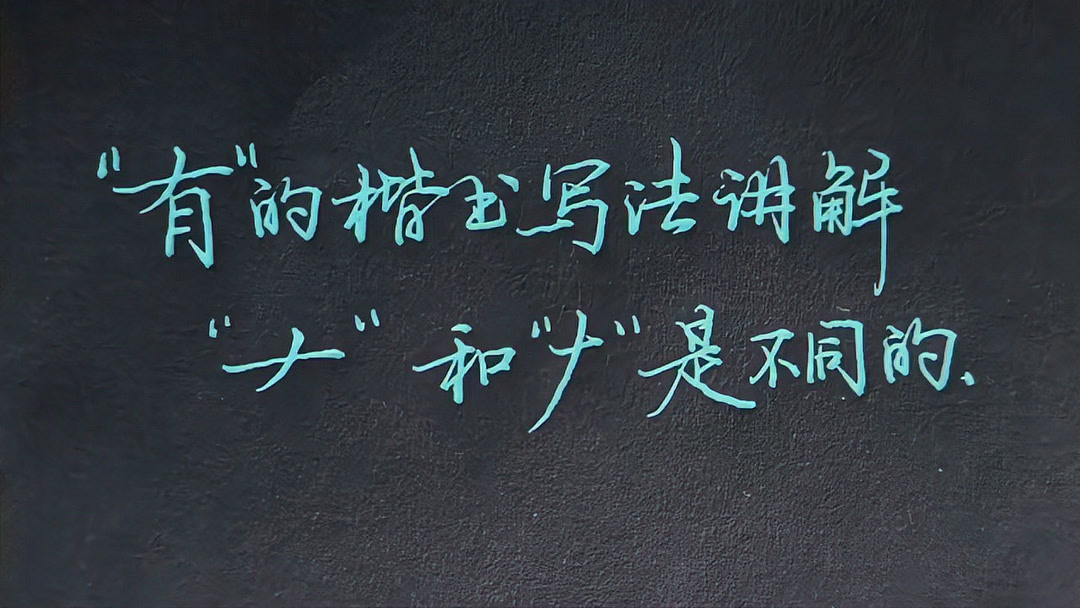 “有”的楷书写法讲解
“𠂇”和“ナ”是不同的.